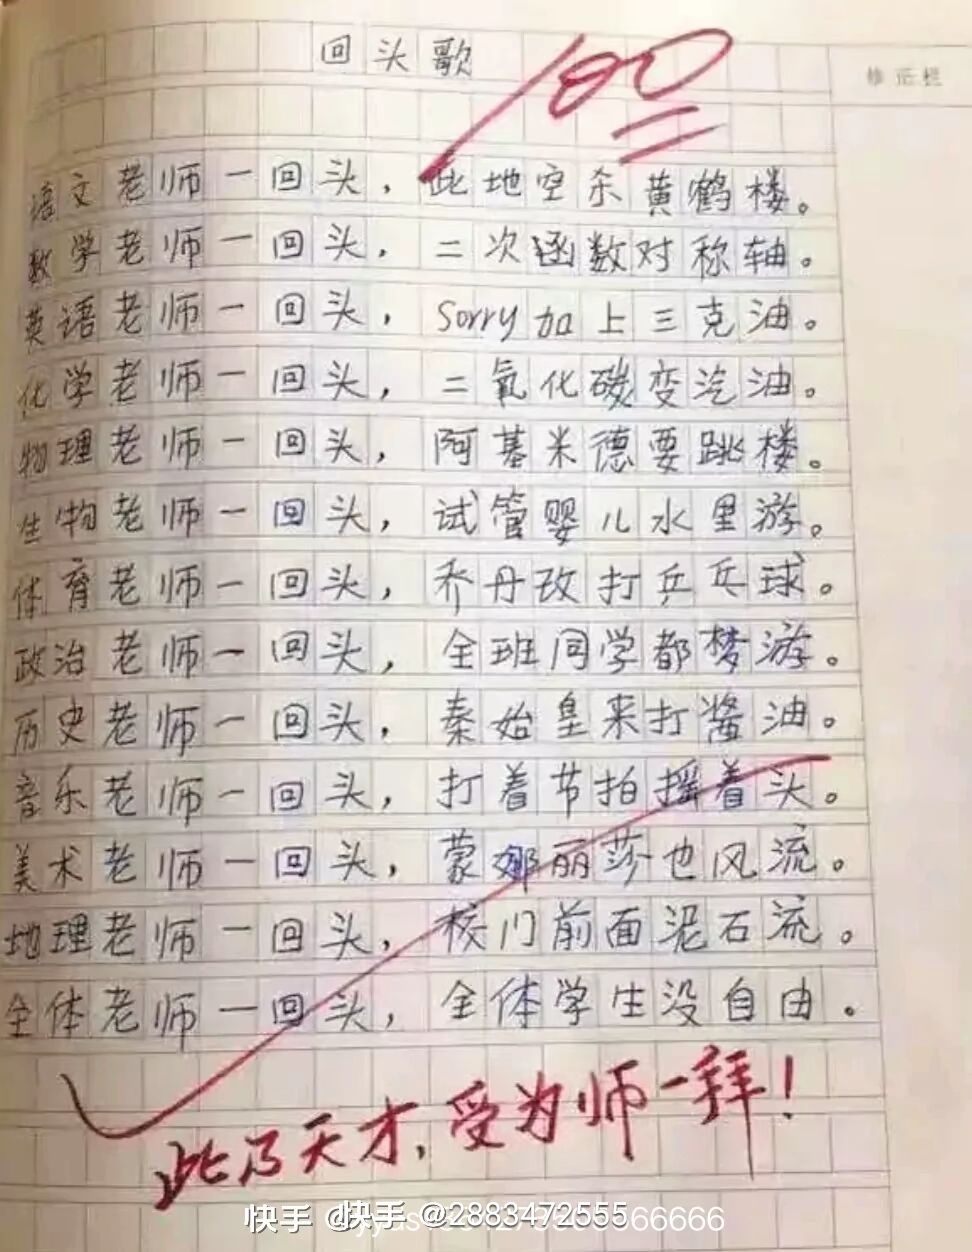 回头歌
100
修改栏
语文老师一回头，此地空余黄鹤楼。
数学老师一回头，二次函数对称轴。
英语老师一回头，sorry加上三克油。
化学老师一回头，二氧化碳变汽油。
物理老师一回头，阿基米德要跳楼。
生物老师一回头，试管婴儿水里游。
体育老师一回头，乔丹改打乒乓球。
政治老师一回头，全班同学都梦游。
历史老师一回头，秦始皇来打酱油。
音乐老师一回头，打着节拍摇着头。
美术老师一回头，蒙娜丽莎也风流。
地理老师一回头，校门前面泥石流。
全体老师一回头，全体学生没自由。
此乃天才，受为师一拜！
快手 快手 @2883472555 66666